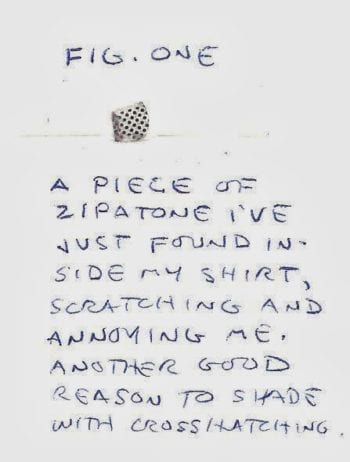 FIG. ONE
A PIECE OF
ZIPATONE I'VE
JUST FOUND IN-
SIDE MY SHIRT,
SCRATCHING AND
ANNOYING ME.
ANOTHER GOOD
REASON TO SHADE
WITH CROSSHATCHING.